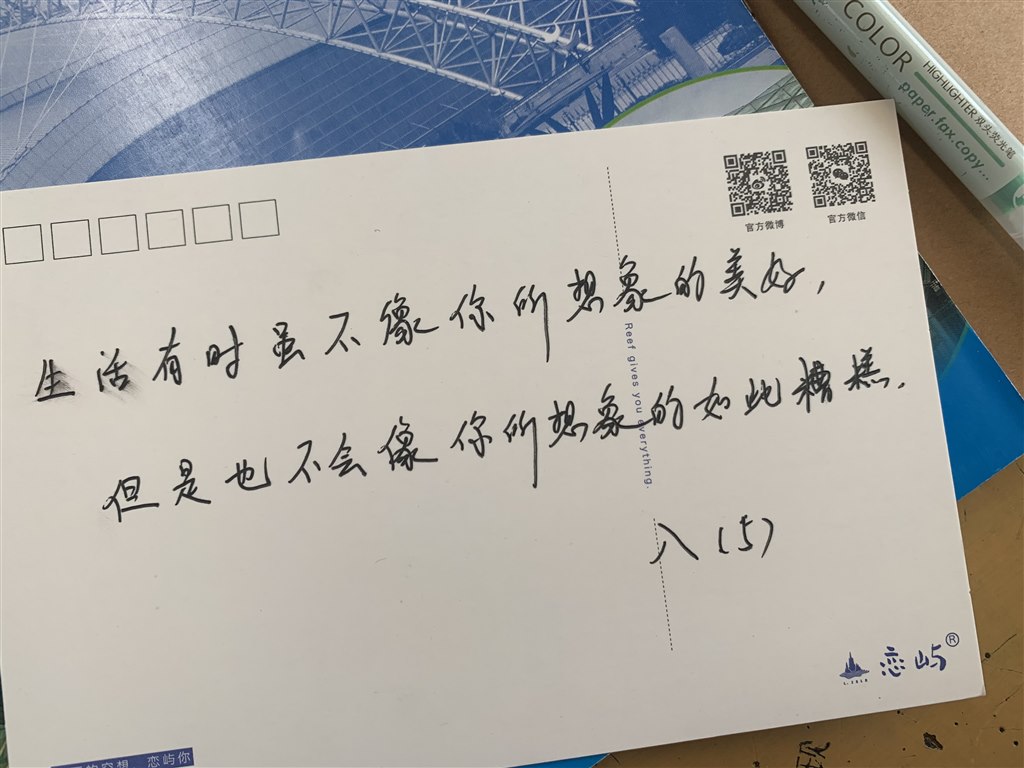 COLOR
HIGHLIGHTER 双头荧光笔
paper.fax.copy...
官方微博
官方微信
生活有时虽不像你所想象的美好,
Reef gives you everything.
但是也不会像你所想象的如此糟糕.
八(5)
恋屿®
的空想 恋屿你